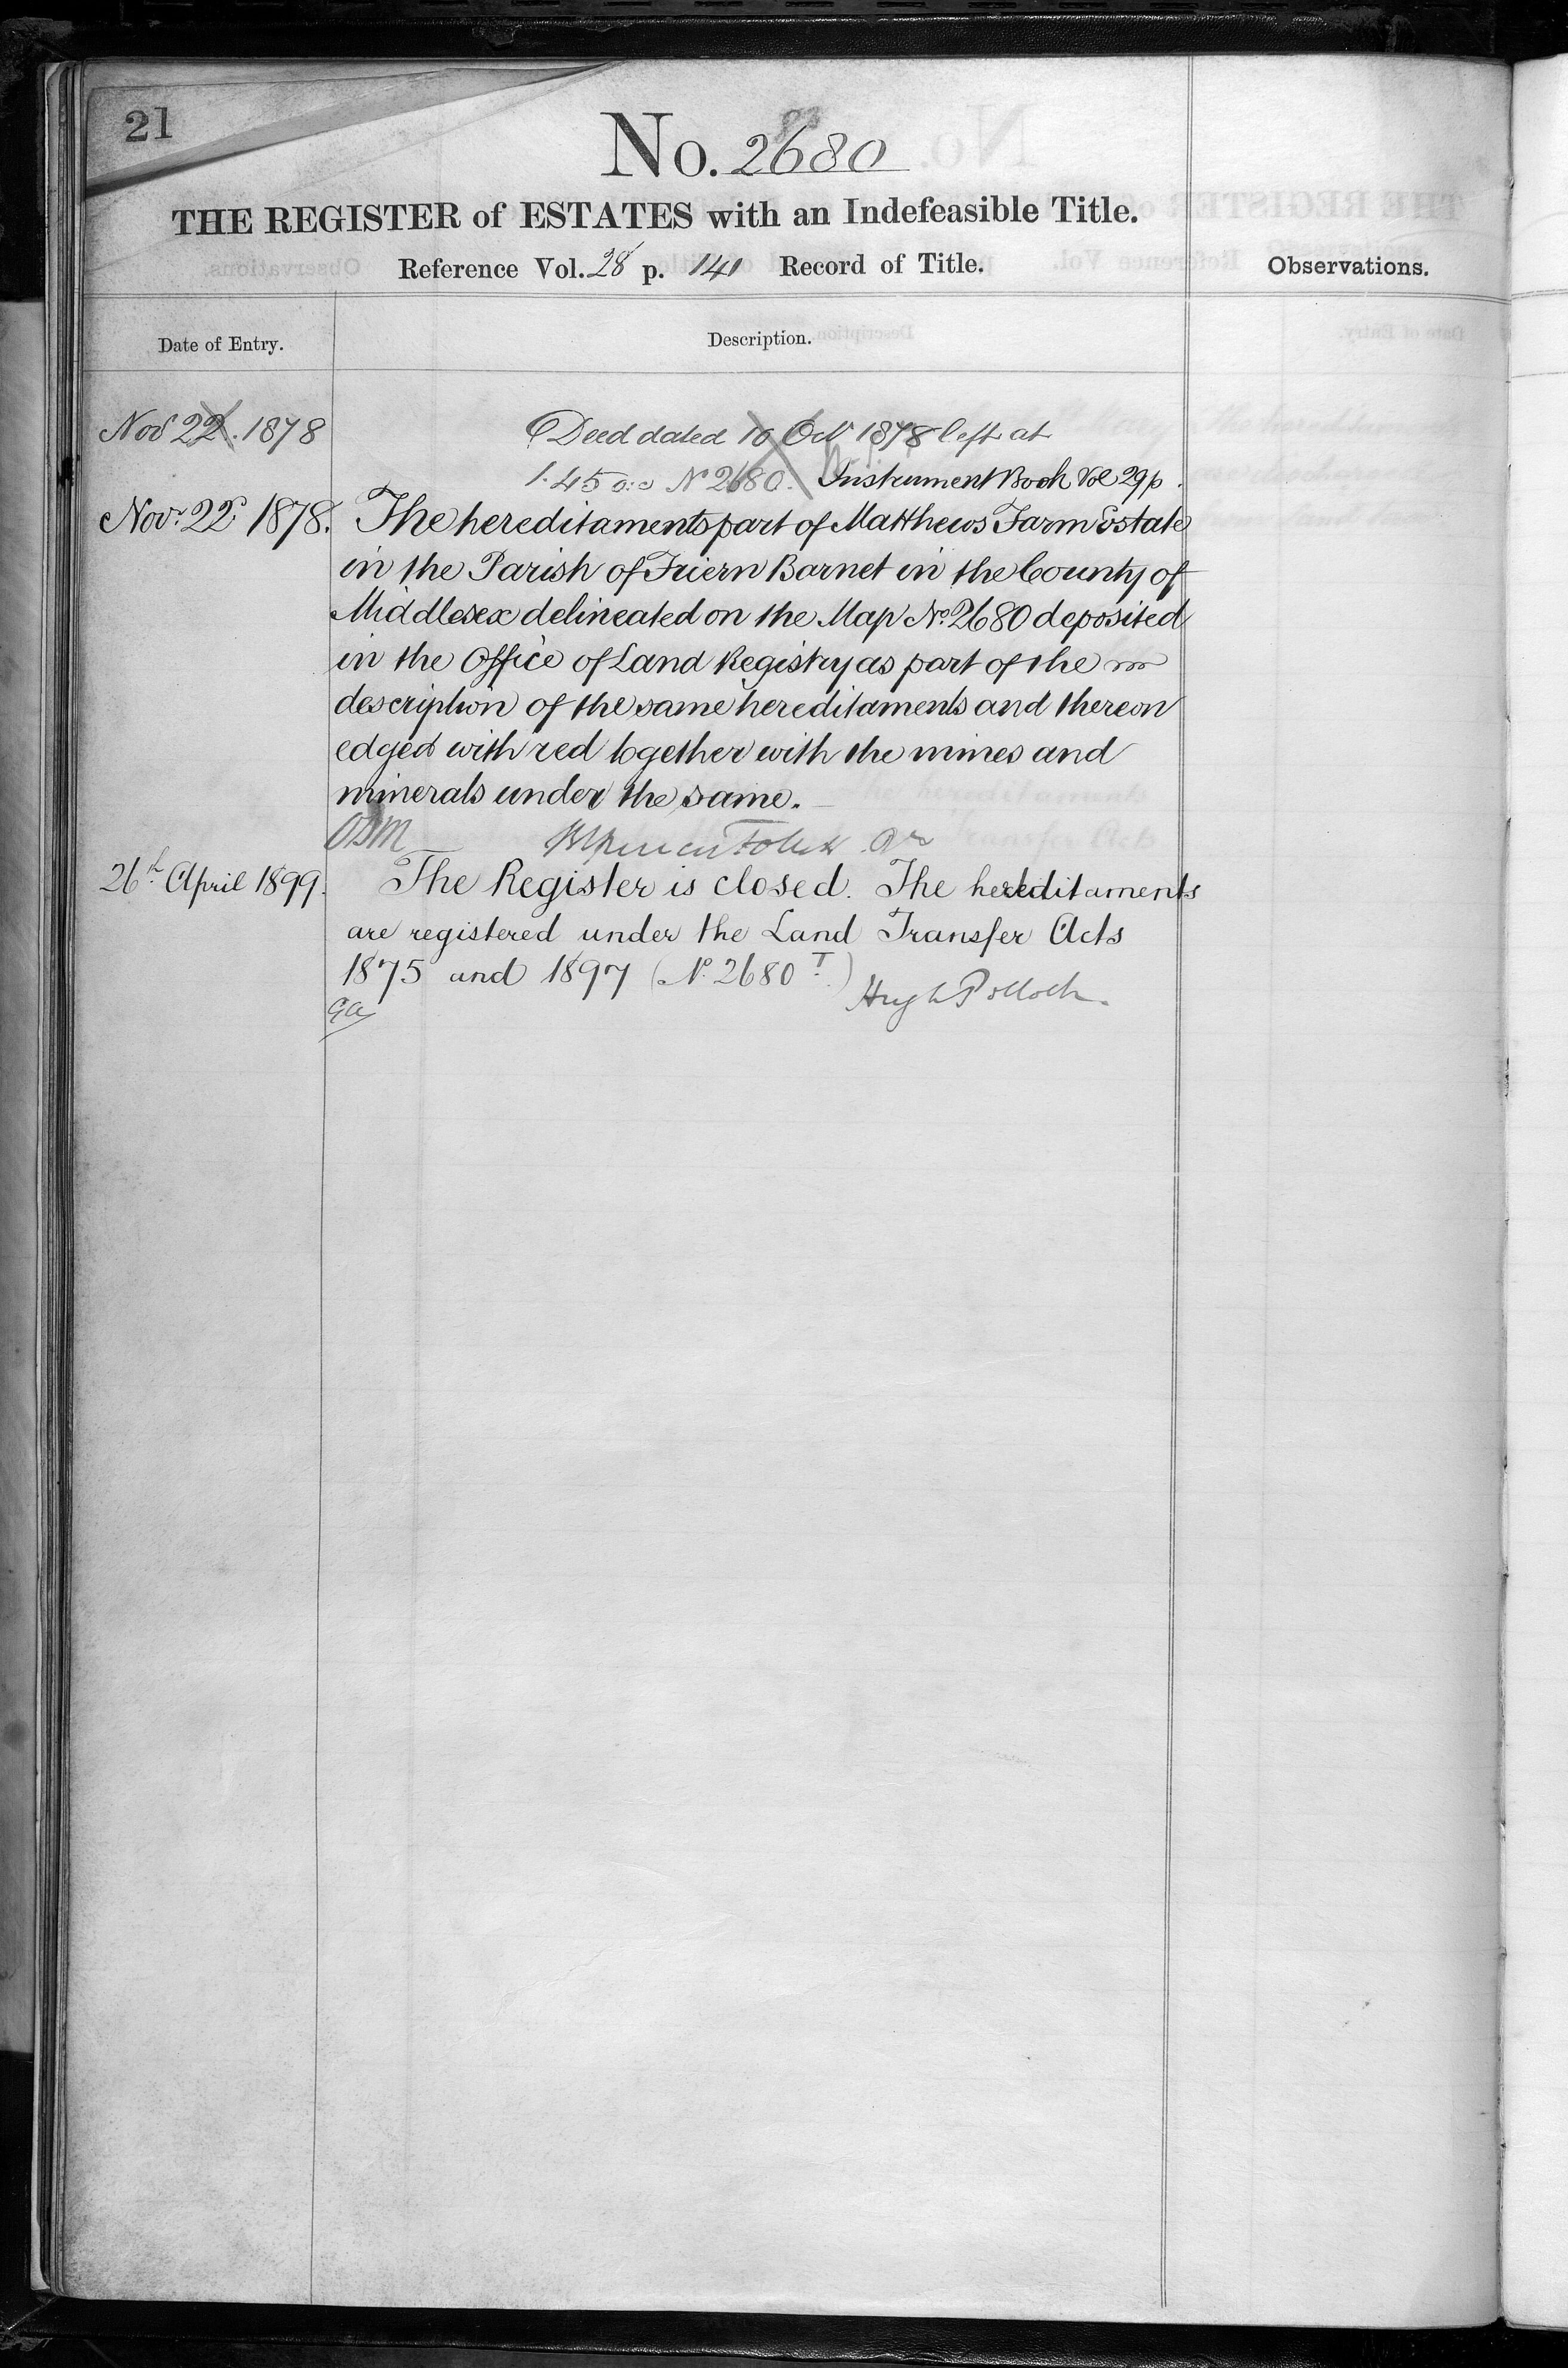 21
No. 2680
THE REGISTER of ESTATES with an Indefeasible Title.
Reference Vol. 28 p. 141 Record of Title.
Observations.
Date of Entry.
Description.
Nov 22. 1878
Deed dated 10 Oct 1878 left at
1.45 N 2680. Instrument Book Vol 29 p.
Novr. 22d. 1878.
The hereditaments part of Matthews Farm Estate
in the Parish of Friern Barnet in the County of
Middlesex delineated on the Map No. 2680 deposited
in the Office of Land Registry as part of the
description of the same hereditaments and thereon
edged with red together with the mines and
minerals under the same.
26th April 1899.
The Register is closed. The hereditaments
are registered under the Land Transfer Acts
1875 and 1897 (No. 2680 T.)
Hugh Pollock.